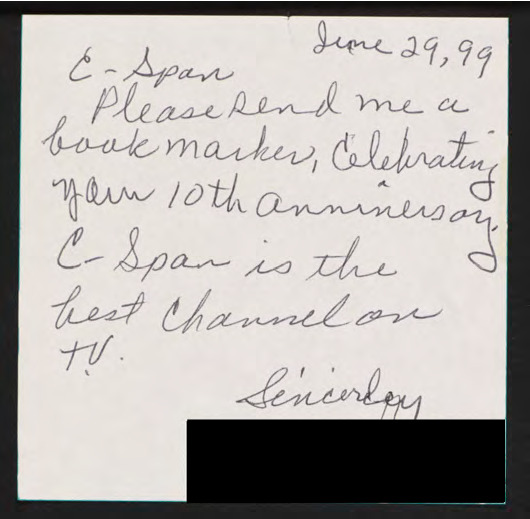 June 29, 99
C-Span
Please send me a
book marker, Celebrating
your 10th anninersary
C-Span is the
best Channel on
T.V.
Sincerley